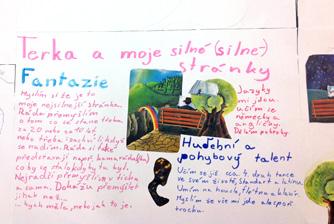 Terka a moje silné (silne)
stránky
Fantazie
Myslím si že je to
moje nejsilnější stránka.
Ráda přemýšlím
o tom co se stane třeba
za 20 nebo za 10 let
nebo třeba i zachvíli, když
se nudím. Ráda si také
představuji např. kamaráda(ku)
co by se stalo kdyby tu byl.
Nejradši přemýšlím v tichu
a sama. Dokážu přemýšlet
jak na
bych měla, nebo jak to je.
Jazyky
mi jdou.
učím se
německy a
anglicky.
Dělám pokroky.
Hudební a
pohybový talent
Učím se již cca 4. druh tance
ve svém životě, standart a latinu.
Umím na housle, flétnu a klavír.
Myslím že vše mi jde alespoň
trochu.